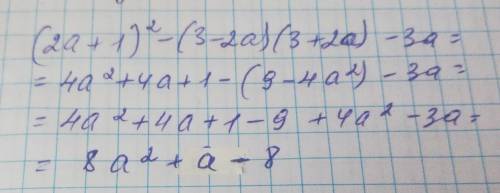 (2a+1)² - (3-2a)(3+2a) - 3a =
= 4a² + 4a + 1 - (9 - 4a²) - 3a =
= 4a² + 4a + 1 - 9 + 4a² - 3a =
= 8a² + a - 8